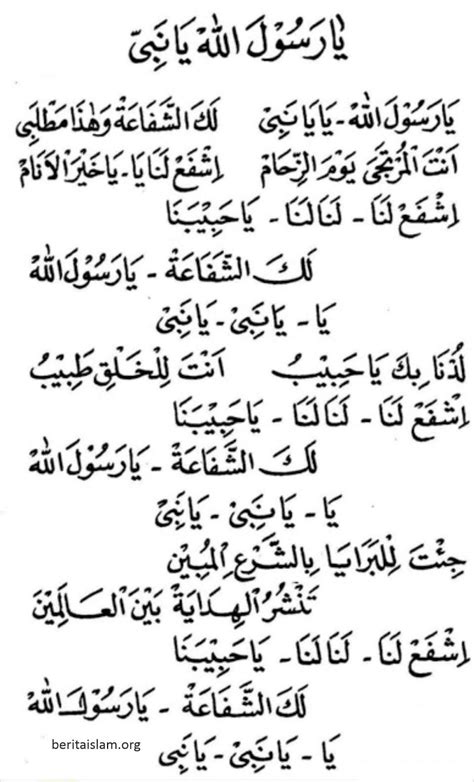 يَا رَسُوْلَ اللهْ يَا نَبِيّ
يَا رَسُوْلَ اللهْ - يَا يَا نَبِيْ لَكَ الشَّفَاعَةْ وَهٰذَا مَطْلَبِيْ
اَنْتَ الْمُرْتَجَى يَوْمَ الزِّحَامْ اِشْفَعْ لَنَا يَا - يَا خَيْرَ الْاَنَامْ
اِشْفَعْ لَنَا - لَنَا لَنَا - يَا حَبِيْبَنَا
لَكَ الشَّفَاعَةْ - يَا رَسُوْلَ اللهْ
يَا - يَا نَبِيْ - يَا نَبِيْ
لُذْنَا بِكَ يَا حَبِيْبُ اَنْتَ لِلْخَلْقِ طَبِيْبُ
اِشْفَعْ لَنَا - لَنَا لَنَا - يَا حَبِيْبَنَا
لَكَ الشَّفَاعَةْ - يَا رَسُوْلَ اللهْ
يَا - يَا نَبِيْ - يَا نَبِيْ
جِئْتَ لِلْبَرَايَا بِالشَّرْعِ الْمُبِيْنْ
تَنْشُرُ الْهِدَايَةْ بَيْنَ الْعَالَمِيْنَ
اِشْفَعْ لَنَا - لَنَا لَنَا - يَا حَبِيْبَنَا
لَكَ الشَّفَاعَةْ - يَا رَسُوْلَ اللهْ
يَا - يَا نَبِيْ - يَا نَبِيْ
beritaislam.org